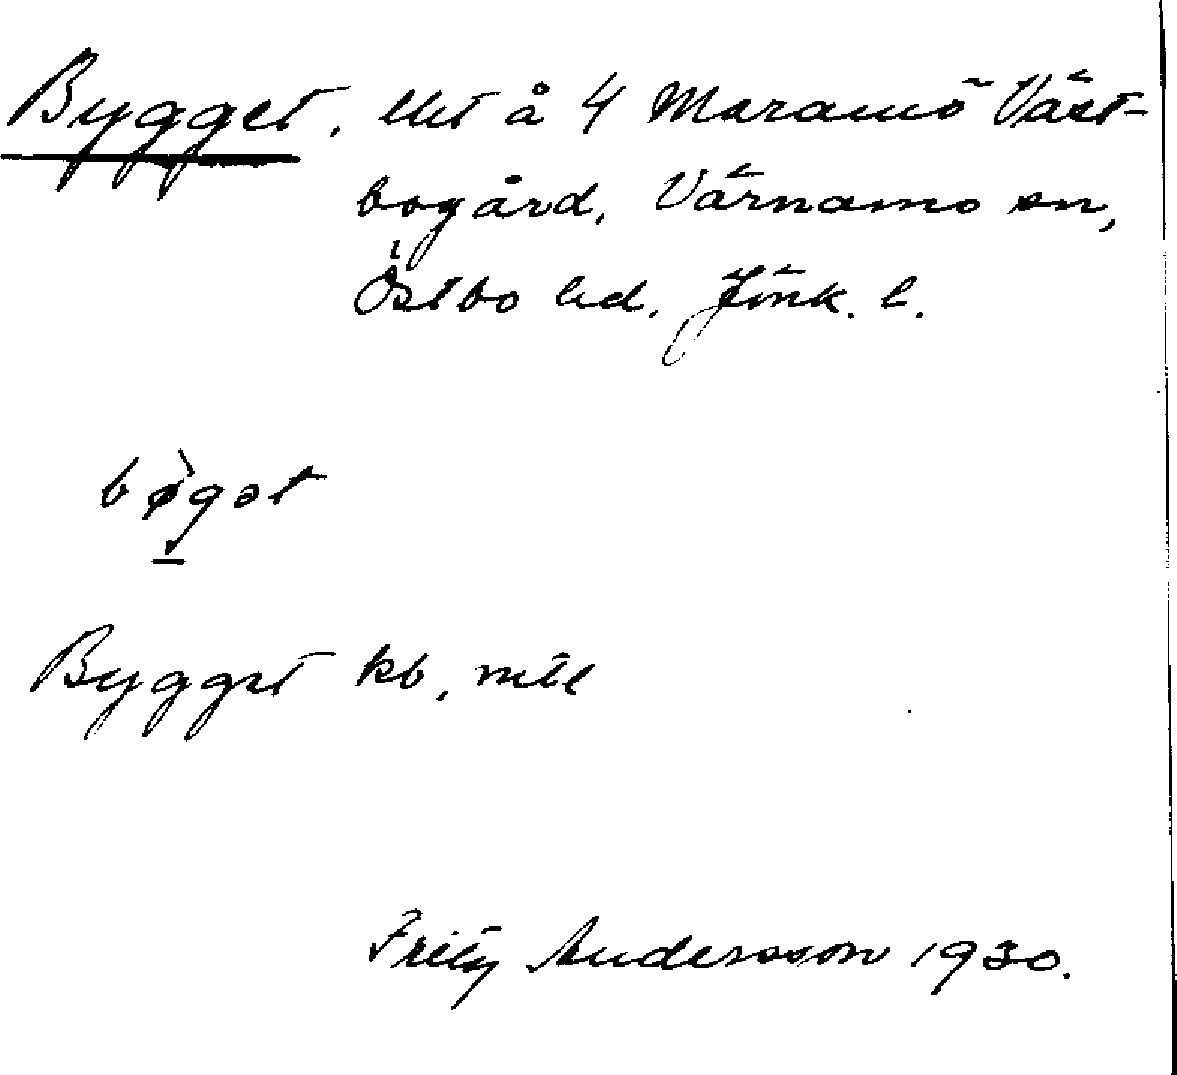 Bygget, lht å 4 Maramö Väst-
bogård, Värnamo sn,
Östbo hd. Jönk. l.
bø̀gət
Bygget kb, mtl
Fritz Andersson 1930.